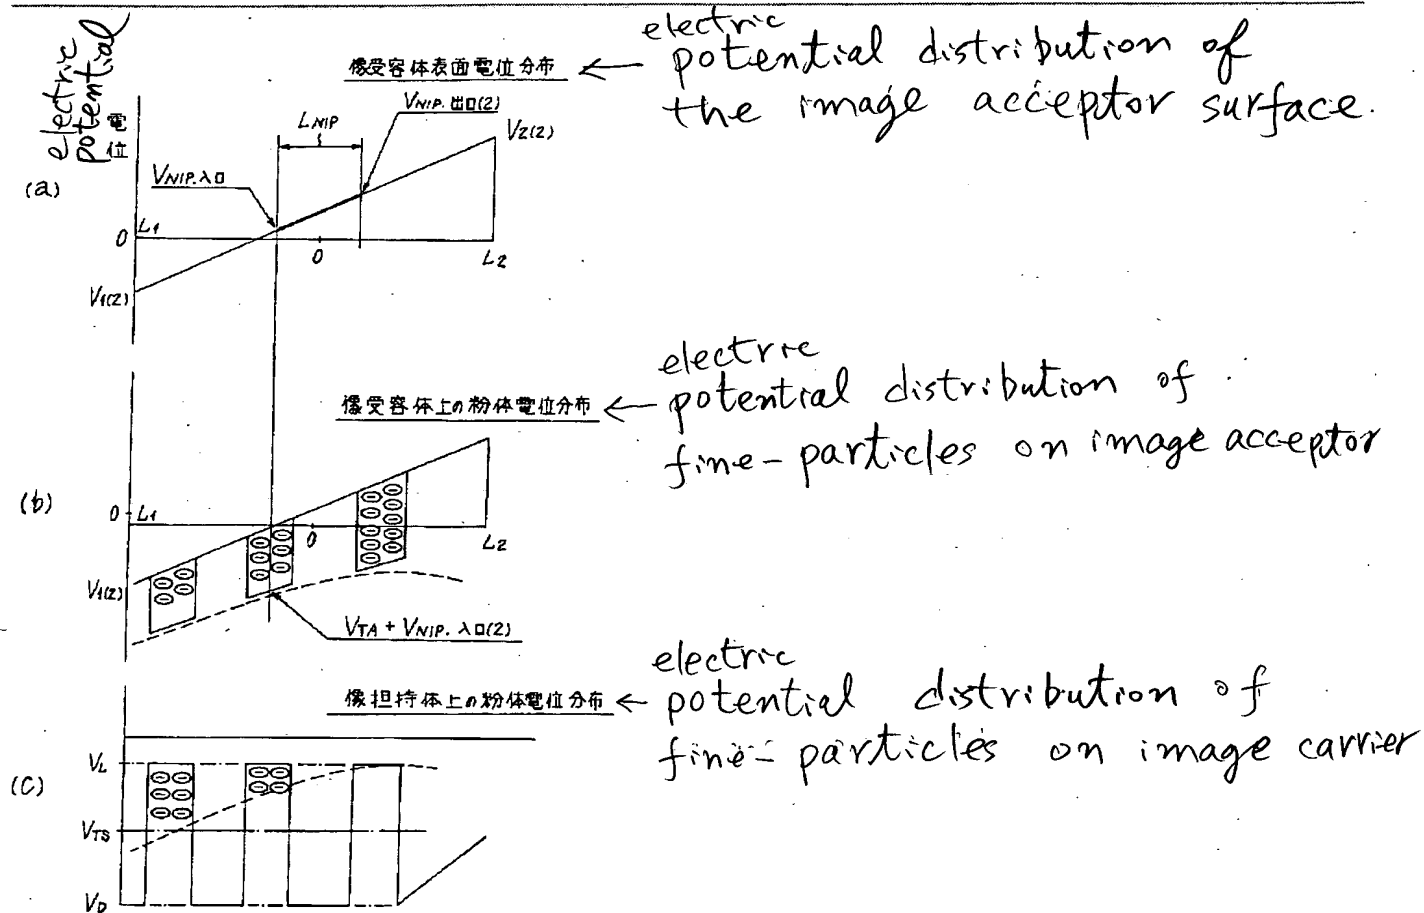 electric
potential
電位
像受容体表面電位分布
←
electric
potential distribution of
the image acceptor surface.
(a)
LNIP
VNIP.出口(2)
V2(2)
VNIP.入口
0
L1
0
L2
V1(2)
electric
像受容体上の粉体電位分布
←
potential distribution of
fine-particles on image acceptor
(b)
0
L1
0
L2
V1(2)
VTA + VNIP.入口(2)
electric
像担持体上の粉体電位分布
←
potential distribution of
fine-particles on image carrier
(c)
VL
VTS
VD